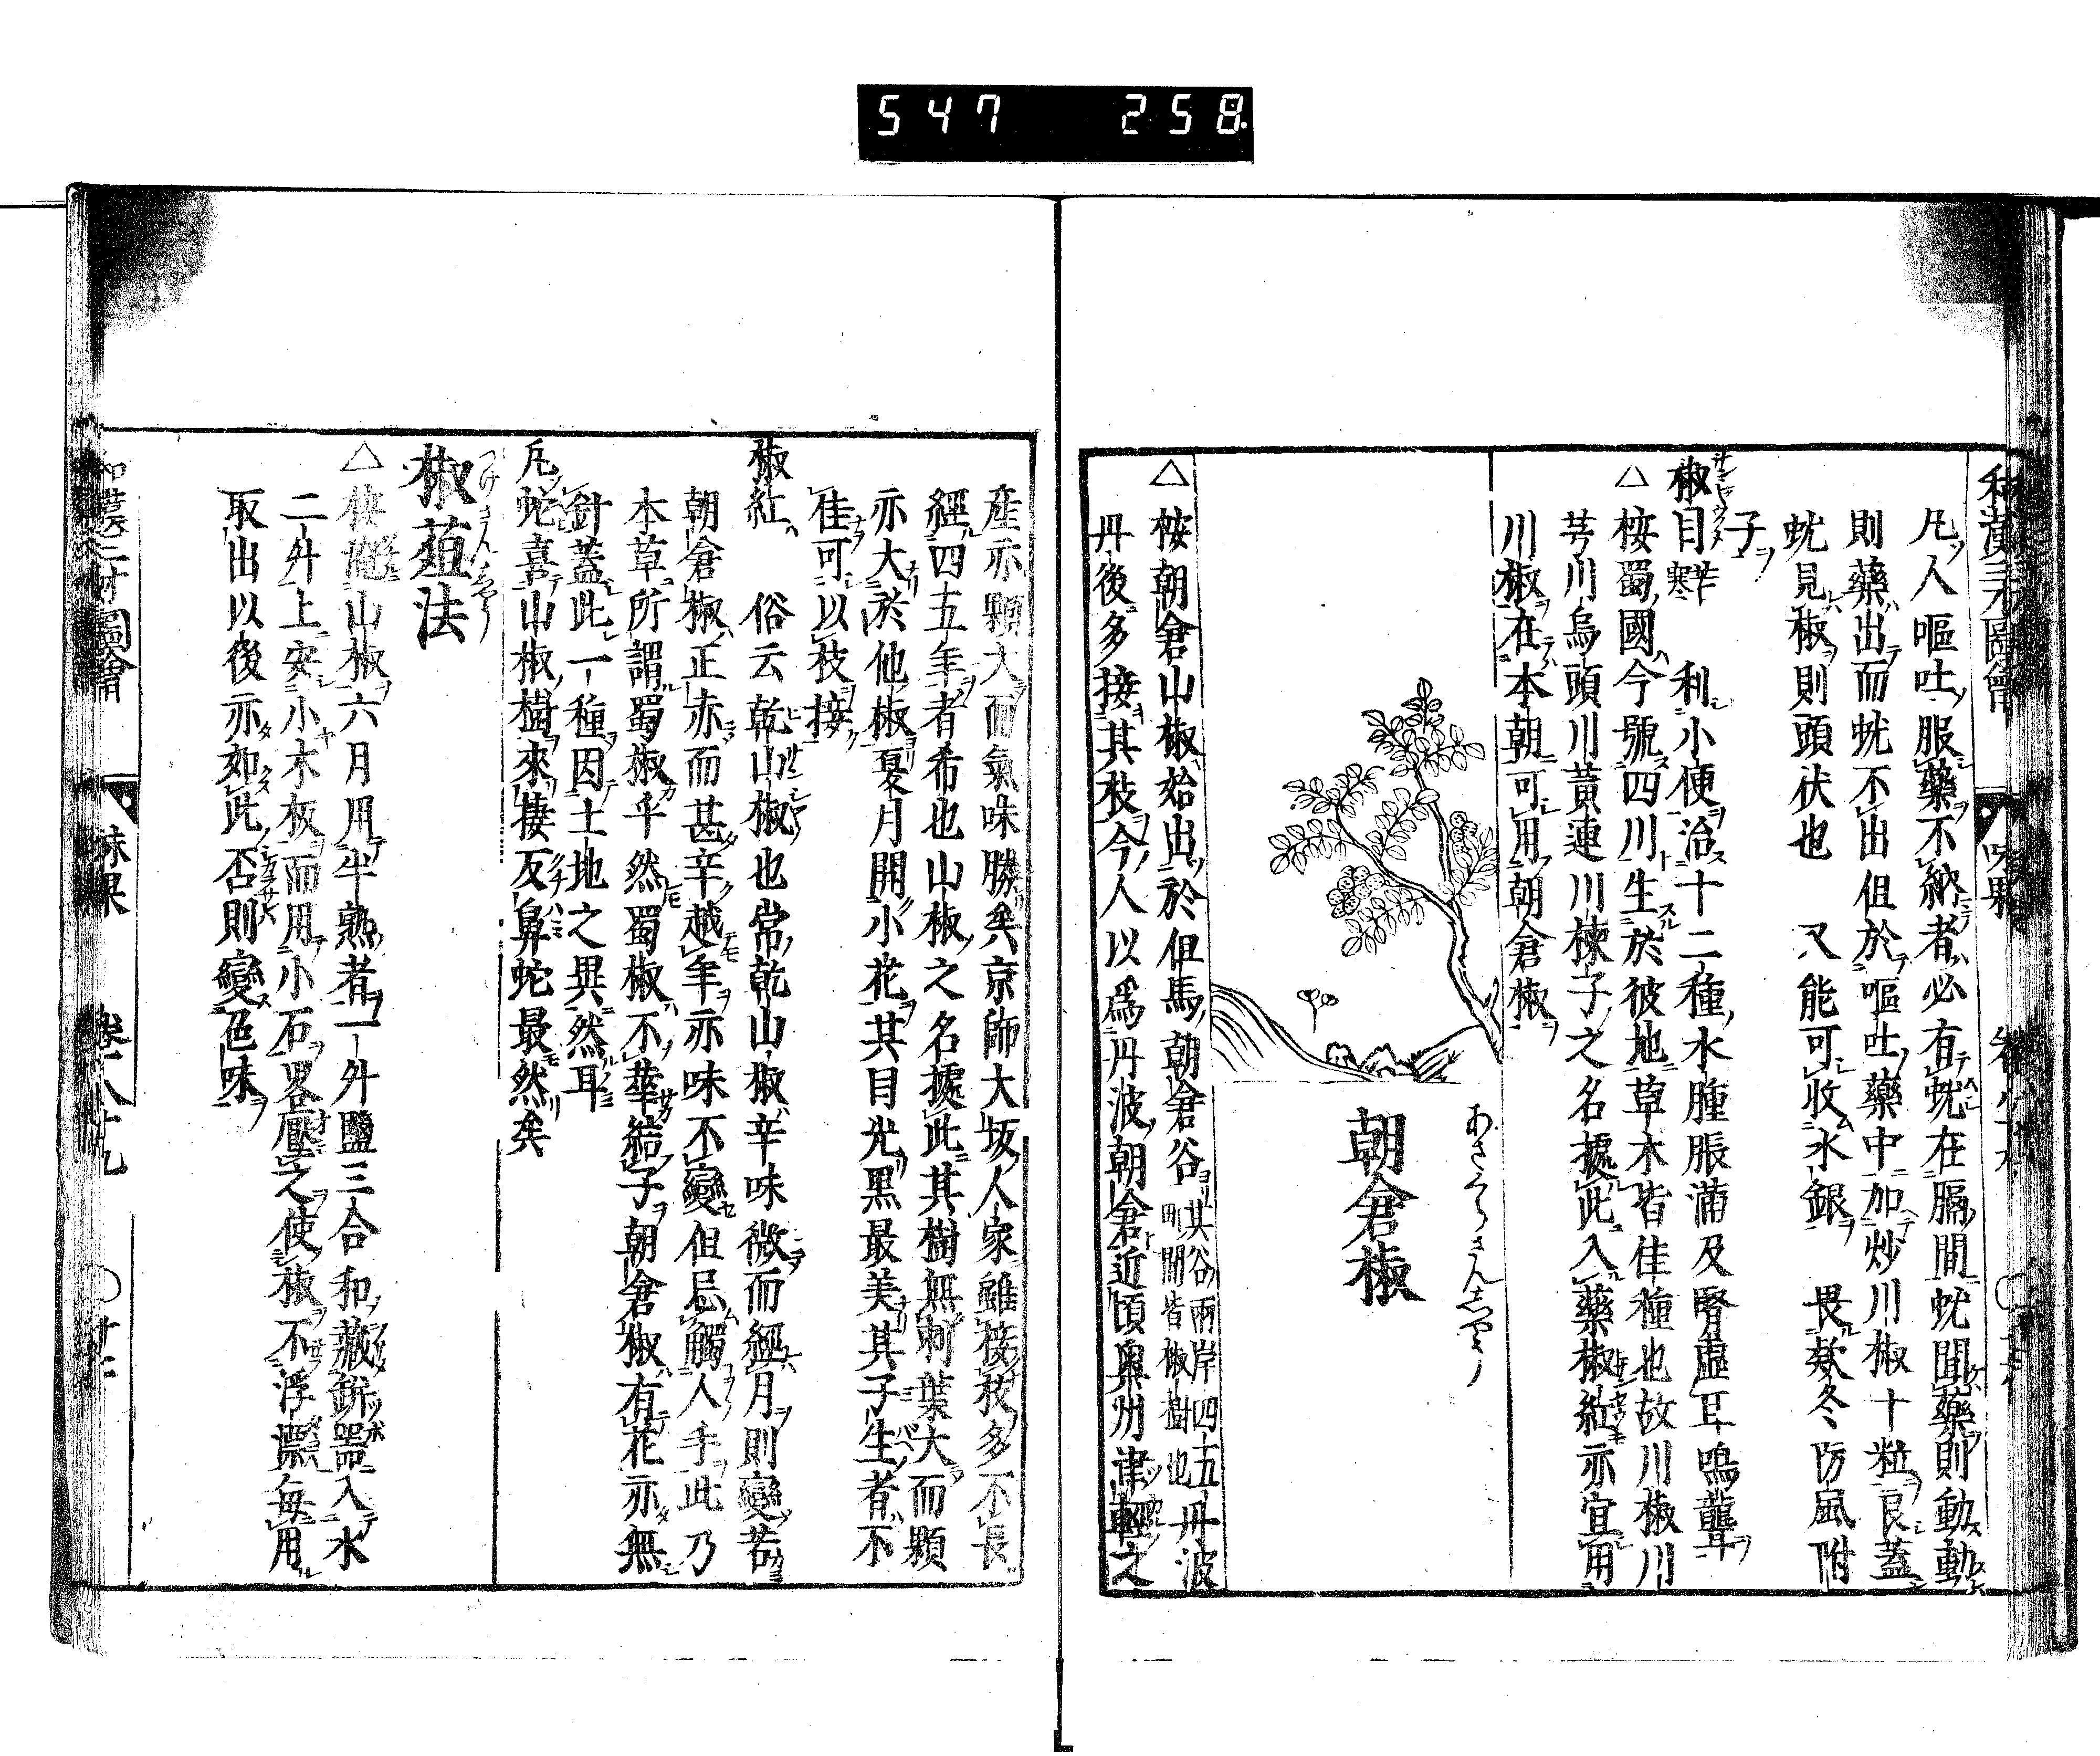 547 258
和漢三才圖會 味果
凡人嘔吐服藥不納者必有蚘在膈間蚘聞藥則動動
則藥出而蚘不出但於嘔吐藥中加炒川椒十粒良蓋
蚘見椒則頭伏也 又能可收水銀 畏欵冬防風附
子
椒目 辛寒 利小便治十二種水腫脹滿及腎虛耳鳴聾
△桉蜀國今號四川生於彼地草木皆佳種也故川椒川
芎川烏頭川黃連川楝子之名據此入藥椒紅亦宜用
川椒在本朝可用朝倉椒
あさくらさんしやう
朝倉椒
△桉朝倉山椒始出於但馬朝倉谷 其谷兩岸四五町間皆椒樹也 丹波
丹後多接其枝今人以爲丹波朝倉近頃奧州津輕之
産亦顆大而氣味勝矣京師大坂人家雖接枝多不長
經四五年者希也山椒之名據此其樹無刺葉大而顆
亦大於他椒夏月開小花其目光黒最美其子生者不
佳可以枝接
椒紅 俗云乾山椒也常乾山椒辛味微而經月則變若
朝倉椒正赤而甚辛越年亦味不變但忌觸人手此乃
本草所謂蜀椒乎然蜀椒不華結子朝倉椒有花亦無
針蓋此一種因土地之異然耳
凡蛇喜山椒樹來棲反鼻蛇最然矣
つけさんしやう
椒葅法
△桉淹山椒六月用半熟者一升鹽三合和藏缾器入水
二升上安小木板而用小石畧壓之使椒不浮漂毎用
取出以後亦如此否則變色味
和漢三才圖會 味果 卷八十九 〇十二